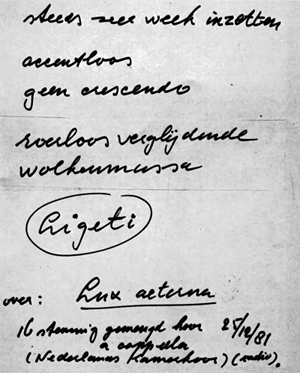 steeds zeer week inzetten
accentloos
geen crescendo
roerloos verglijdende
wolkenmassa
Ligeti
over: Lux aeterna
16 stemmig gemengd koor 25/10/81
a cappella
(Nederlands Kamerkoor) (radio).